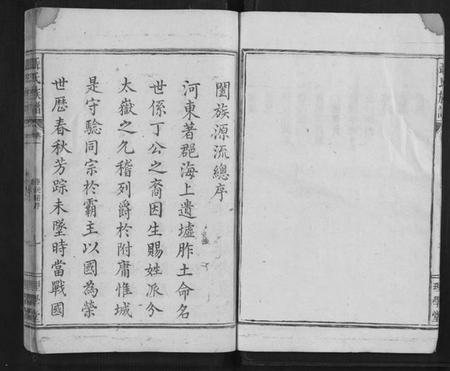 闔族源流總序
河東著郡海上遺墟胙土命名
世係丁公之裔因生賜姓派分
太嶽之允稽列爵於附庸惟城
是守騐同宗於霸主以國為榮
世歷春秋芳踪未墜時當戰國
理學堂